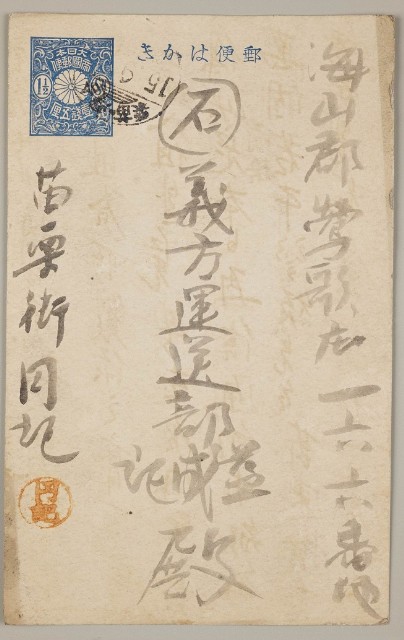 郵便はかき
大日本
帝國郵便
1½
壹錢五厘
海山郡鶯歌庄一六六番地
石
義方運送部
益成記
殿
苗栗街同記
同記